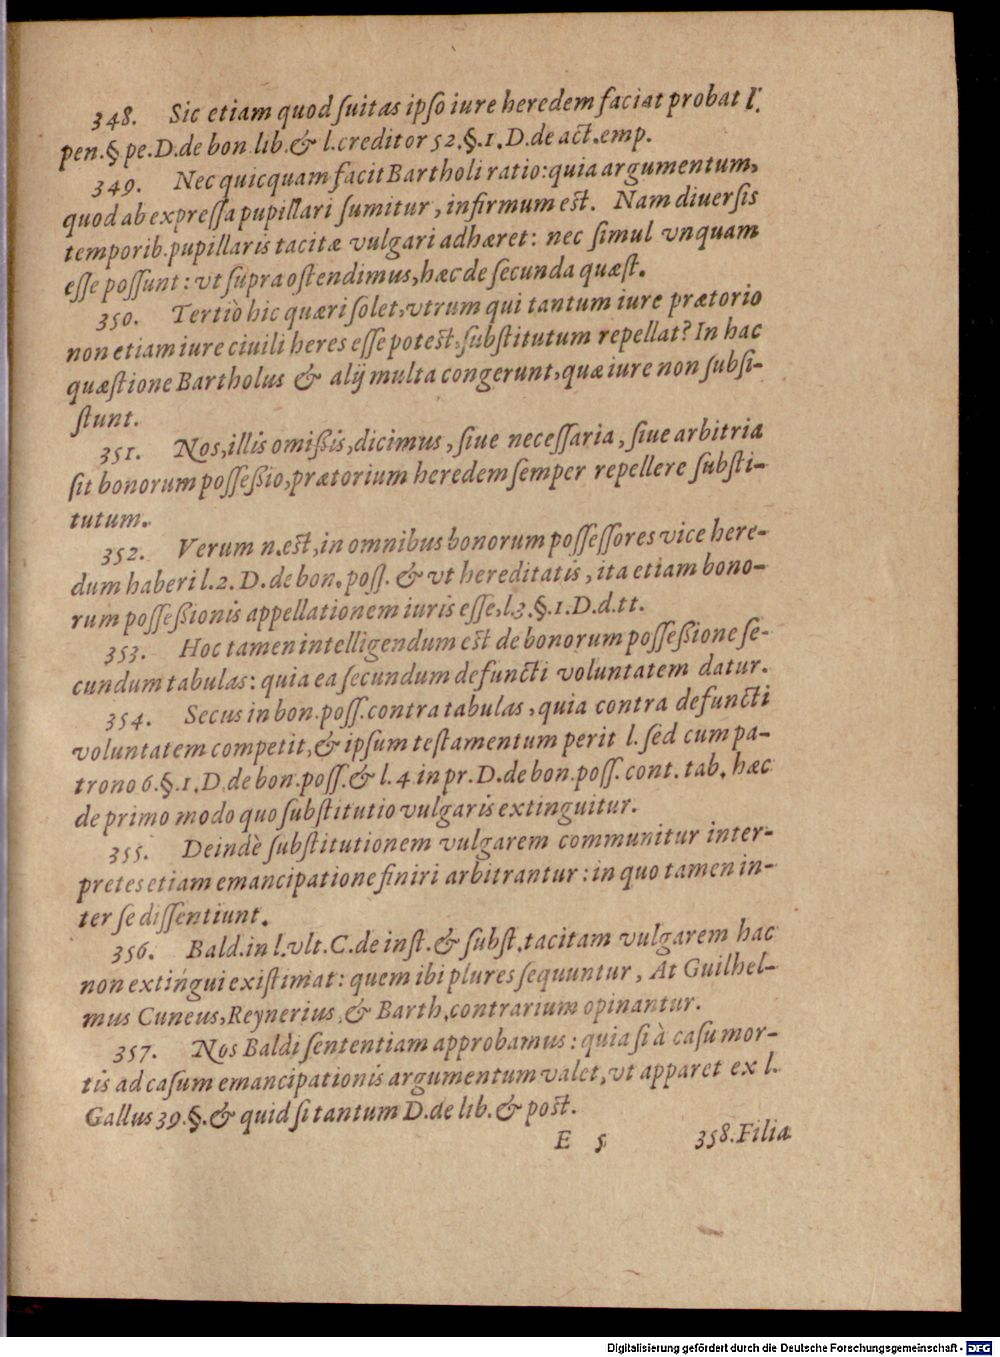 348. Sic etiam quod ſuitas ipſo iure heredem faciat probat l.
pen.§ pe.D.de bon.lib.& l.creditor 52.§.1.D.de act.emp.
349. Nec quicquam facit Bartholi ratio:quia argumentum,
quod ab expreſſa pupillari ſumitur, infirmum est. Nam diuerſis
temporib.pupillaris tacitæ vulgari adhæret: nec ſimul vnquam
eſſe poſſunt: vt ſupra oſtendimus, hæc de ſecunda quæſt.
350. Tertiò hic quæri ſolet, vtrum qui tantum iure prætorio
non etiam iure ciuili heres eſſe potest, ſubſtitutum repellat? In hac
quæſtione Bartholus & alij multa congerunt, quæ iure non ſubſi-
ſtunt.
351. Nos, illis omißis, dicimus, ſiue neceſſaria, ſiue arbitria
ſit bonorum poſſeßio, prætorium heredem ſemper repellere ſubſti-
tutum.
352. Verum n.est, in omnibus bonorum poſſeſſores vice here-
dum haberi l.2. D. de bon. poſſ. & vt hereditatis, ita etiam bono-
rum poſſeßionis appellationem iuris eſſe, l.3.§.1.D.d.tt.
353. Hoc tamen intelligendum est de bonorum poſſeßione ſe-
cundum tabulas: quia ea ſecundum defuncti voluntatem datur.
354. Secus in bon.poſſ.contra tabulas, quia contra defuncti
voluntatem competit, & ipſum teſtamentum perit l. ſed cum pa-
trono 6.§.1.D.de bon.poſſ.& l.4.in pr.D.de bon.poſſ. cont. tab. hæc
de primo modo quo ſubſtitutio vulgaris extinguitur.
355. Deindè ſubſtitutionem vulgarem communitur inter-
pretes etiam emancipatione finiri arbitrantur: in quo tamen in-
ter ſe diſſentiunt.
356. Bald.in l.vlt.C.de inſt.& ſubſt.tacitam vulgarem hac
non extingui exiſtimat: quem ibi plures ſequuntur, At Guilhel-
mus Cuneus, Reynerius, & Barth.contrarium opinantur.
357. Nos Baldi ſententiam approbamus: quia ſi à caſu mor-
tis ad caſum emancipationis argumentum valet, vt apparet ex l.
Gallus 39.§.& quid ſi tantum D.de lib.& post.
E 5 358.Filia
Digitalisierung gefördert durch die Deutsche Forschungsgemeinschaft - DFG